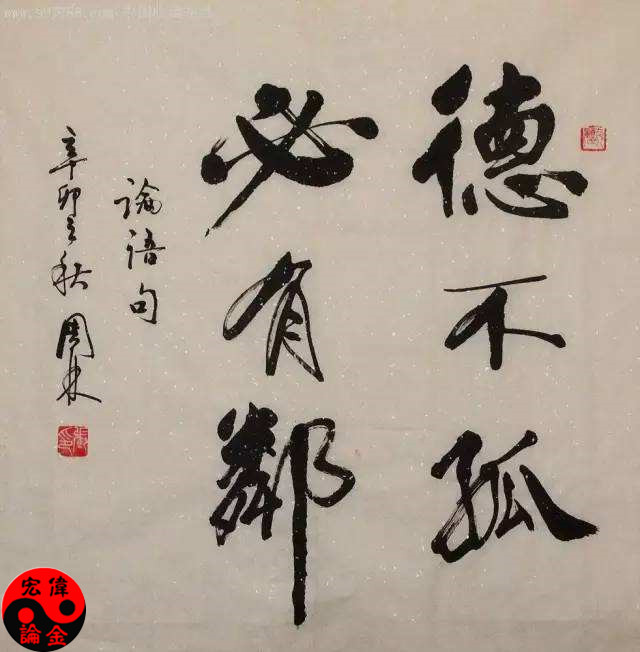 德不孤
必有鄰
論語句
辛卯之秋周林
宏偉
論金